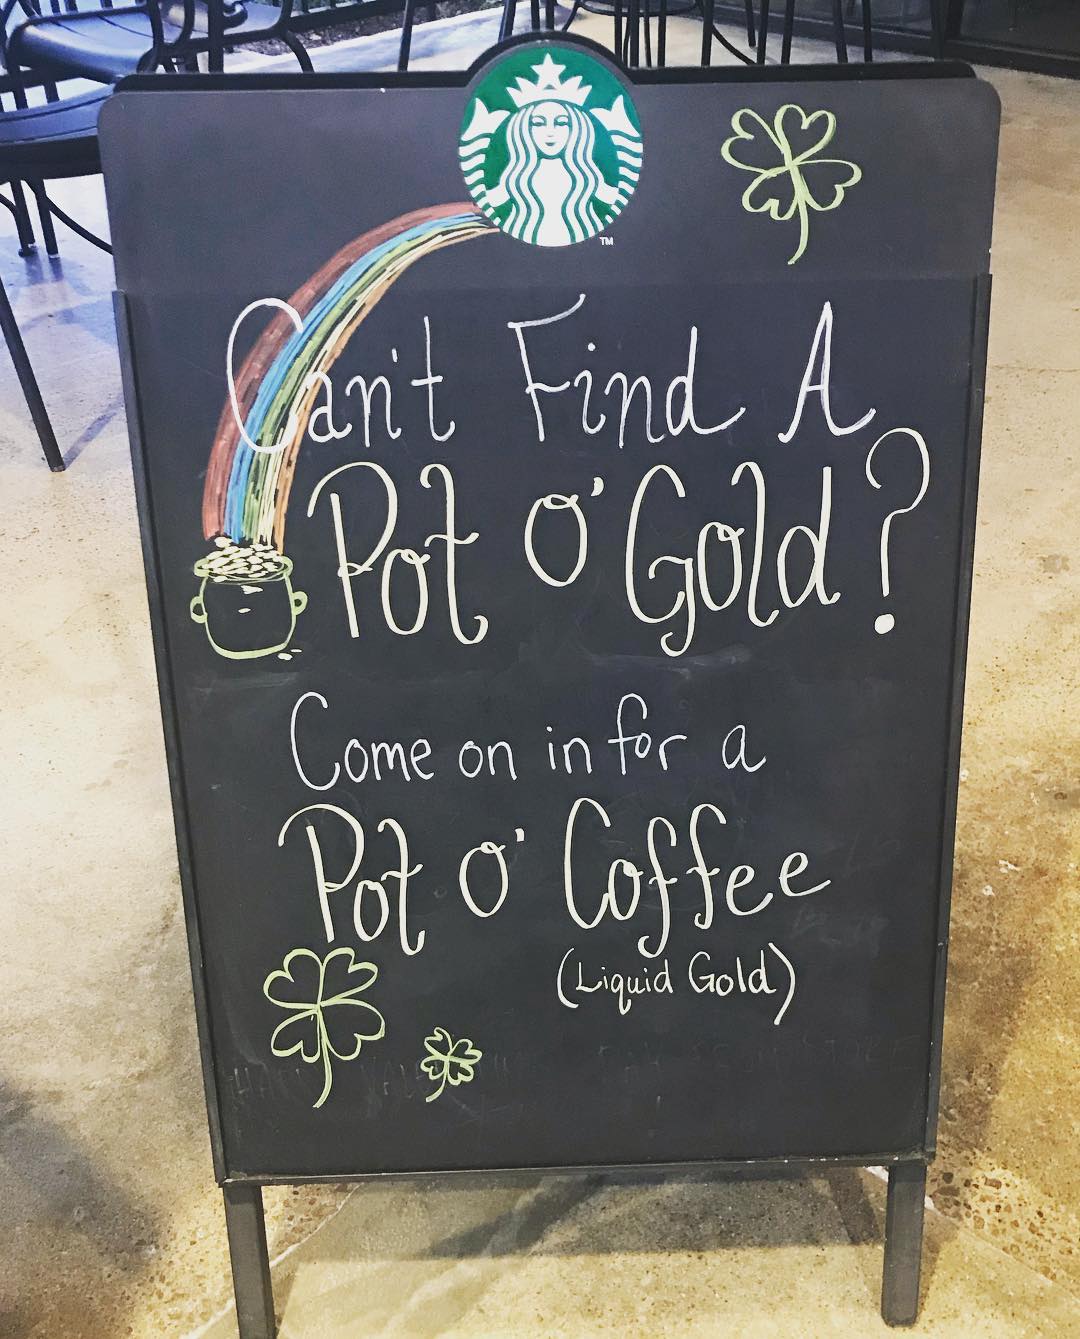 TM
Can't Find A
Pot O' Gold?
Come on in for a
Pot O' Coffee
(Liquid Gold)